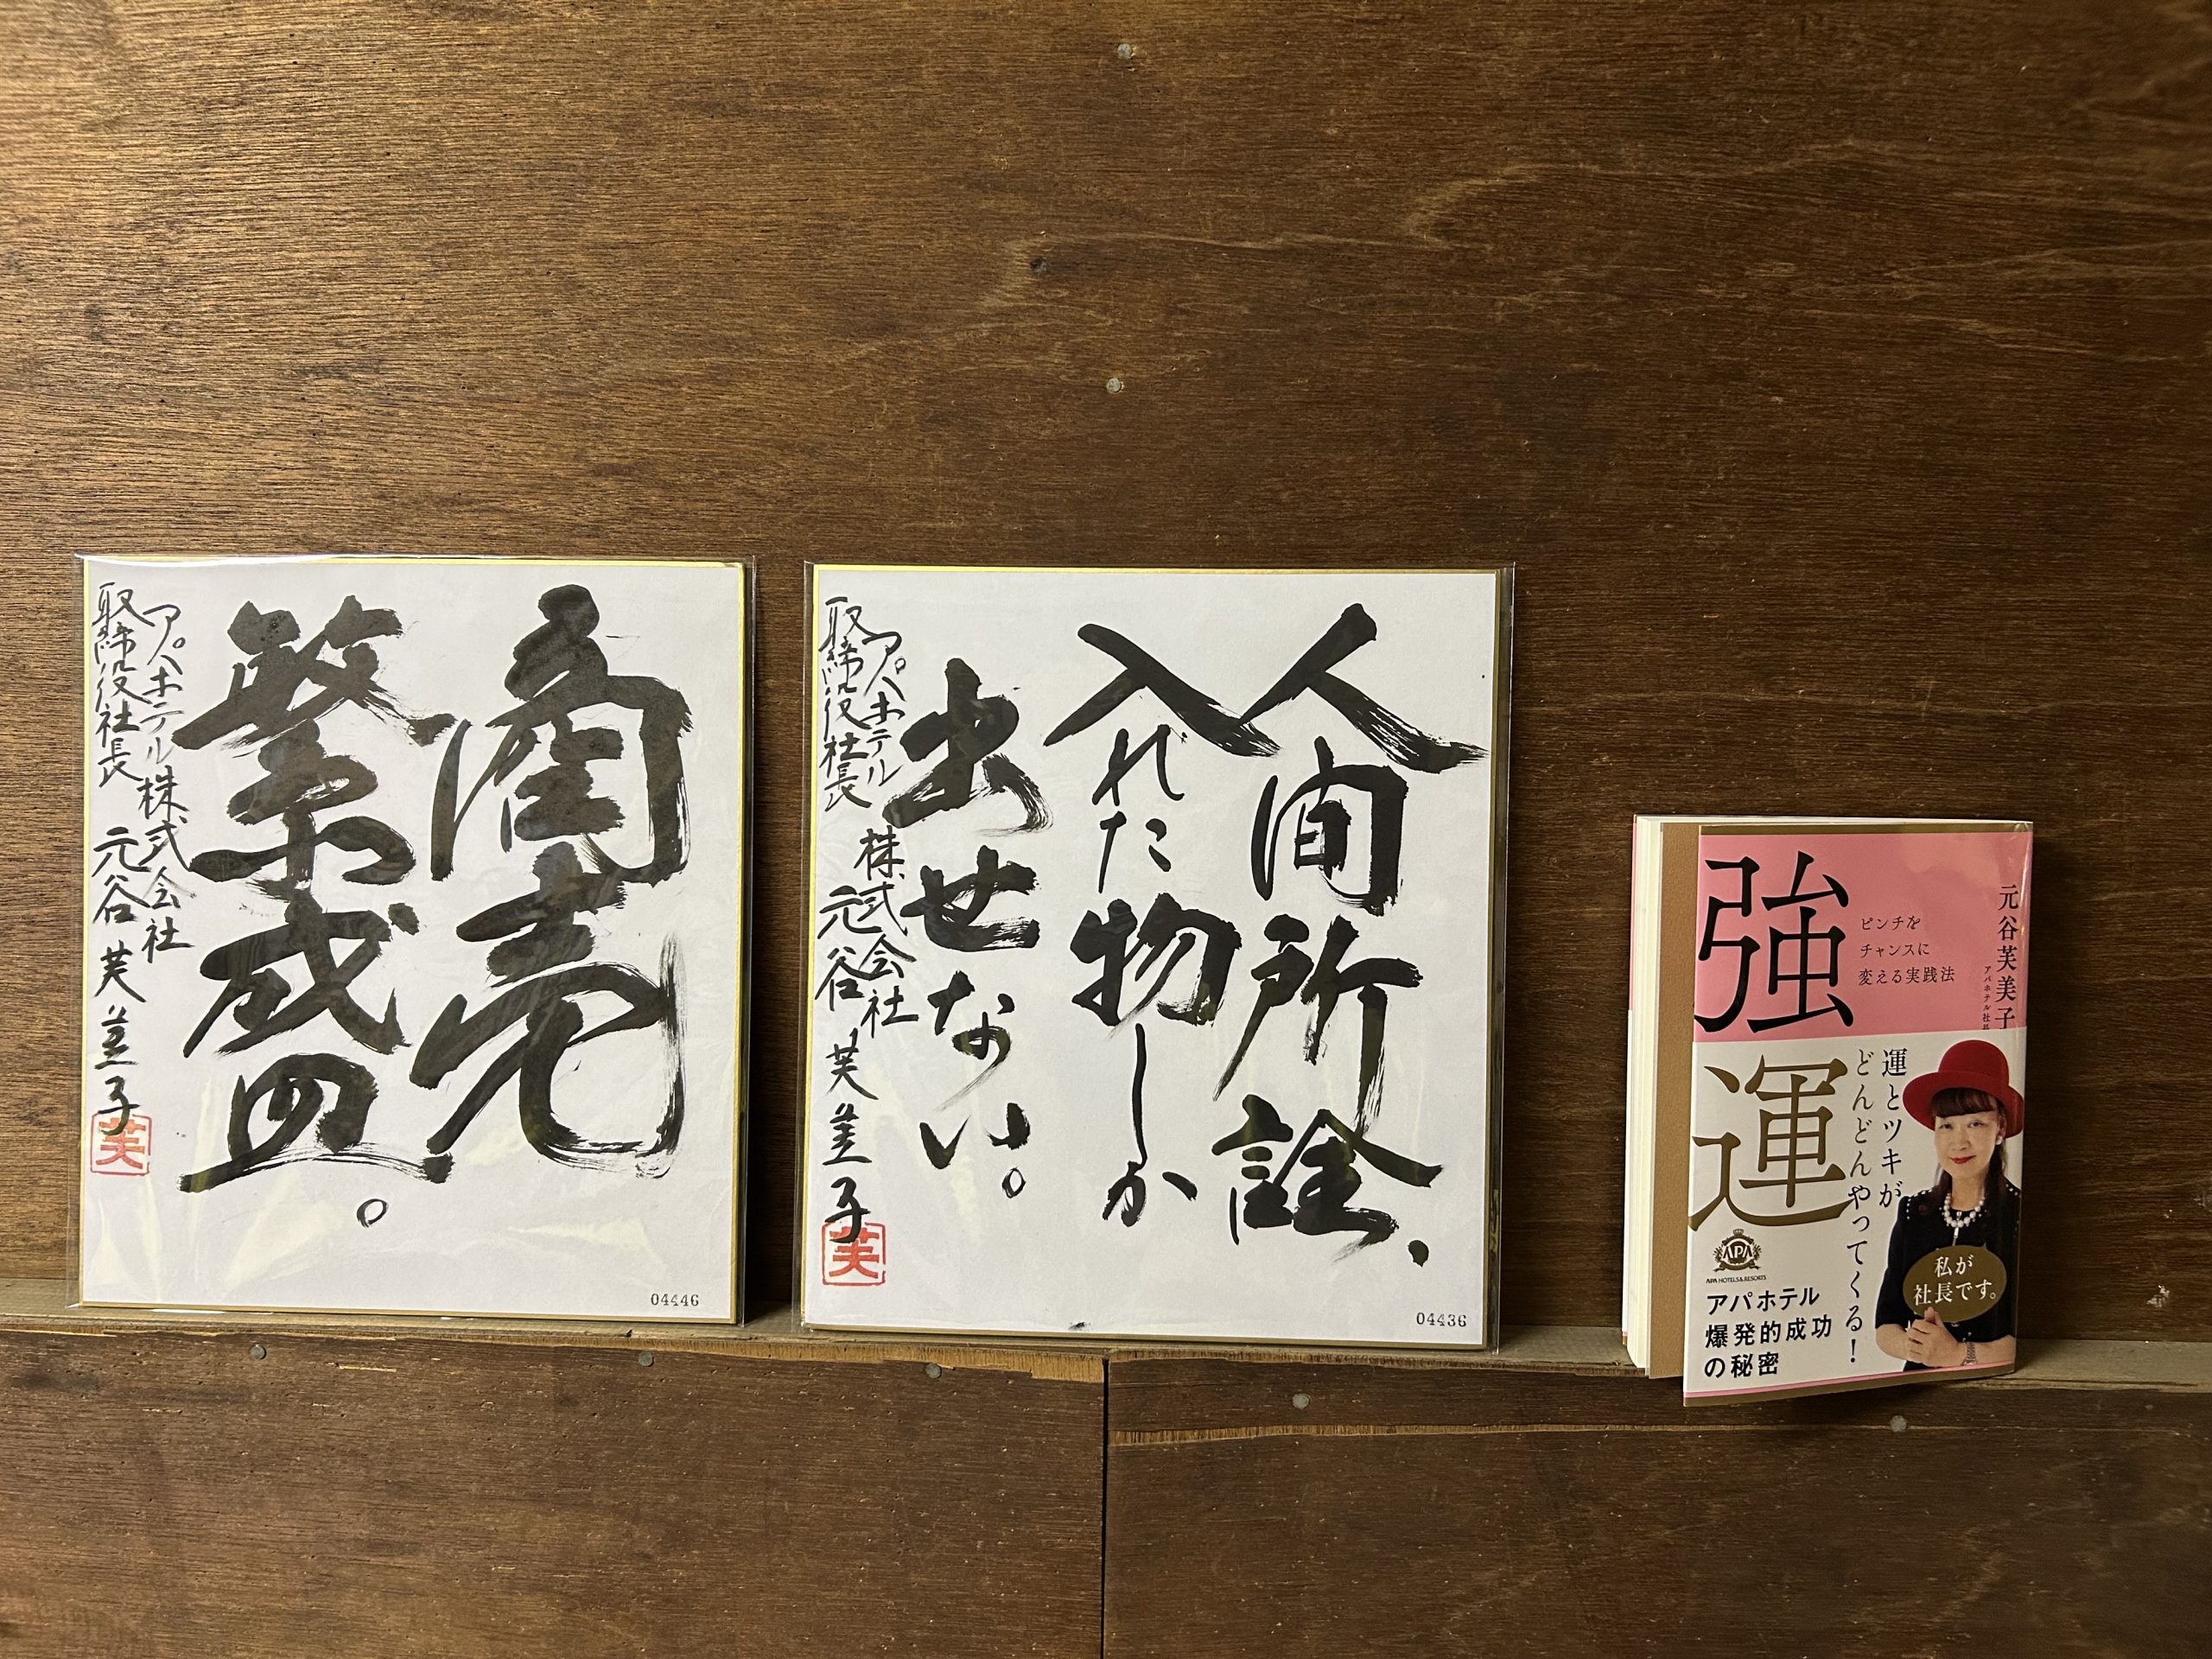 商売
繁盛。
アパホテル株式会社
取締役社長 元谷芙美子
芙
04446
人間所詮、
入れた物しか
出せない。
アパホテル株式会社
取締役社長 元谷芙美子
芙
04436
元谷芙美子
アパホテル社長
ピンチを
チャンスに
変える実践法
強運
運とツキが
どんどんやってくる!
私が
社長です。
APA
APA HOTELS & RESORTS
アパホテル
爆発的成功
の秘密